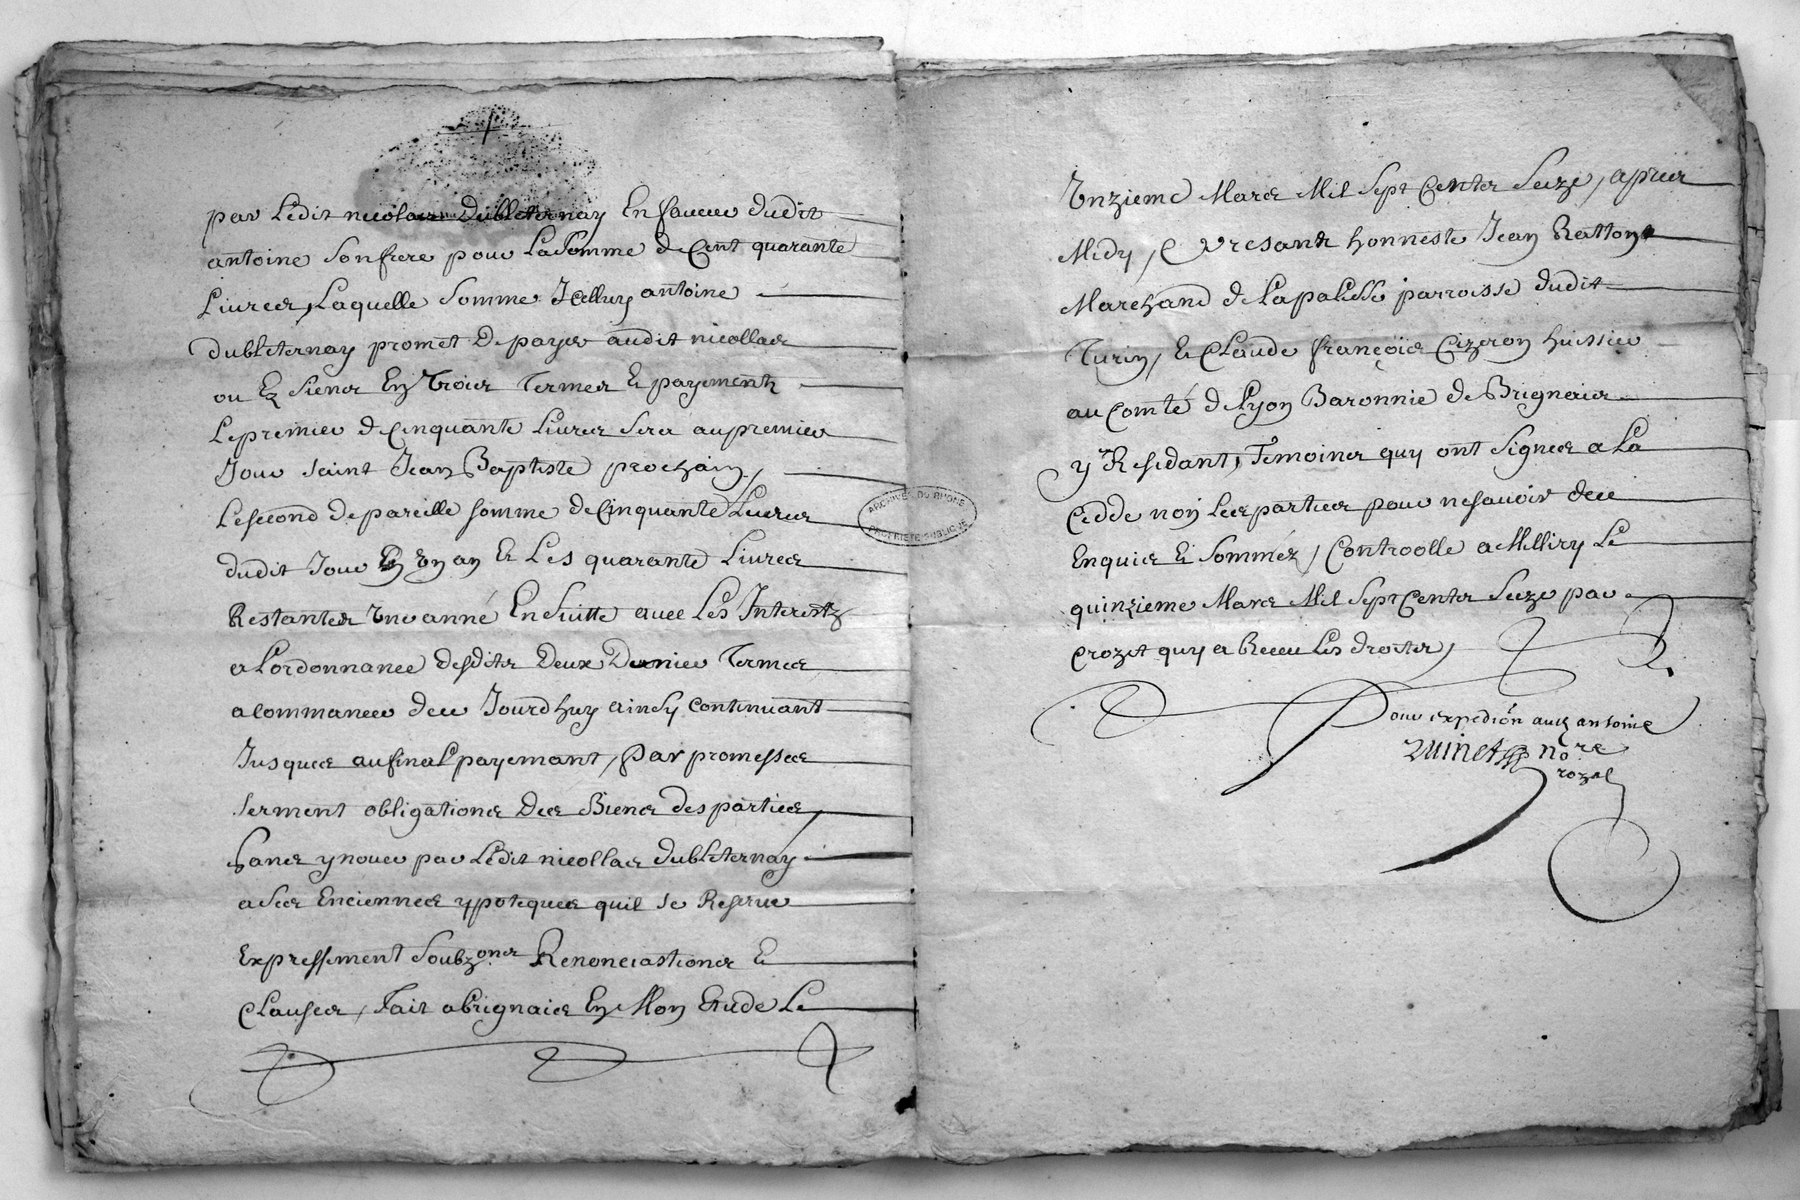 par Ledit nicolas Dubleternay En faveur dudit
antoine son frere pour La somme de Cent quarante
Livres, Laquelle somme Icelluy antoine
dubleternay promet De payer audit nicollas
ou Ez siens En Trois Termes Et payements
Le premier de Cinquante Livres sera au premier
Jour saint Jean Baptiste prochain,
Le second de pareille somme de Cinquante Livres
dudit Jour En un an Et Les quarante Livres
Restantes une anné En suitte avec Les Interestz
a L'ordonnance desdits Deux Dernier Termes
a Commancer des Jourdhuy ainsy Continuant
Jusques au final payemant, par promesses
serment obligations Des Biens des parties
sans ynover par Ledit nicollas dubleternay
a ses Enciennes ypoteques quil se Reserve
Expressement soubz ones Renonciastions Et
Clauses, Fait a brignais En Mon Etude Le
Unzieme Mars Mil sept Cents seize, apres
Midy, Presants honneste Jean Ratton
Marchand de Lapalisse parroisse dudit
Turin, Et Claude françois Cizeron huissier
au Comté de Lyon Baronnie de Brignais
y Residant, Temoins quy ont signes a La
Cedde non Les parties pour ne savoir des
Enquis Et sommez, Controolle a Milliry Le
quinzieme Mars Mil sept Cents seize par
Crozet quy a Receu Les droits,
Pour expedion aud antoine
nore
ARCHIVES DU RHONE
PROPRIÉTÉ PUBLIQUE